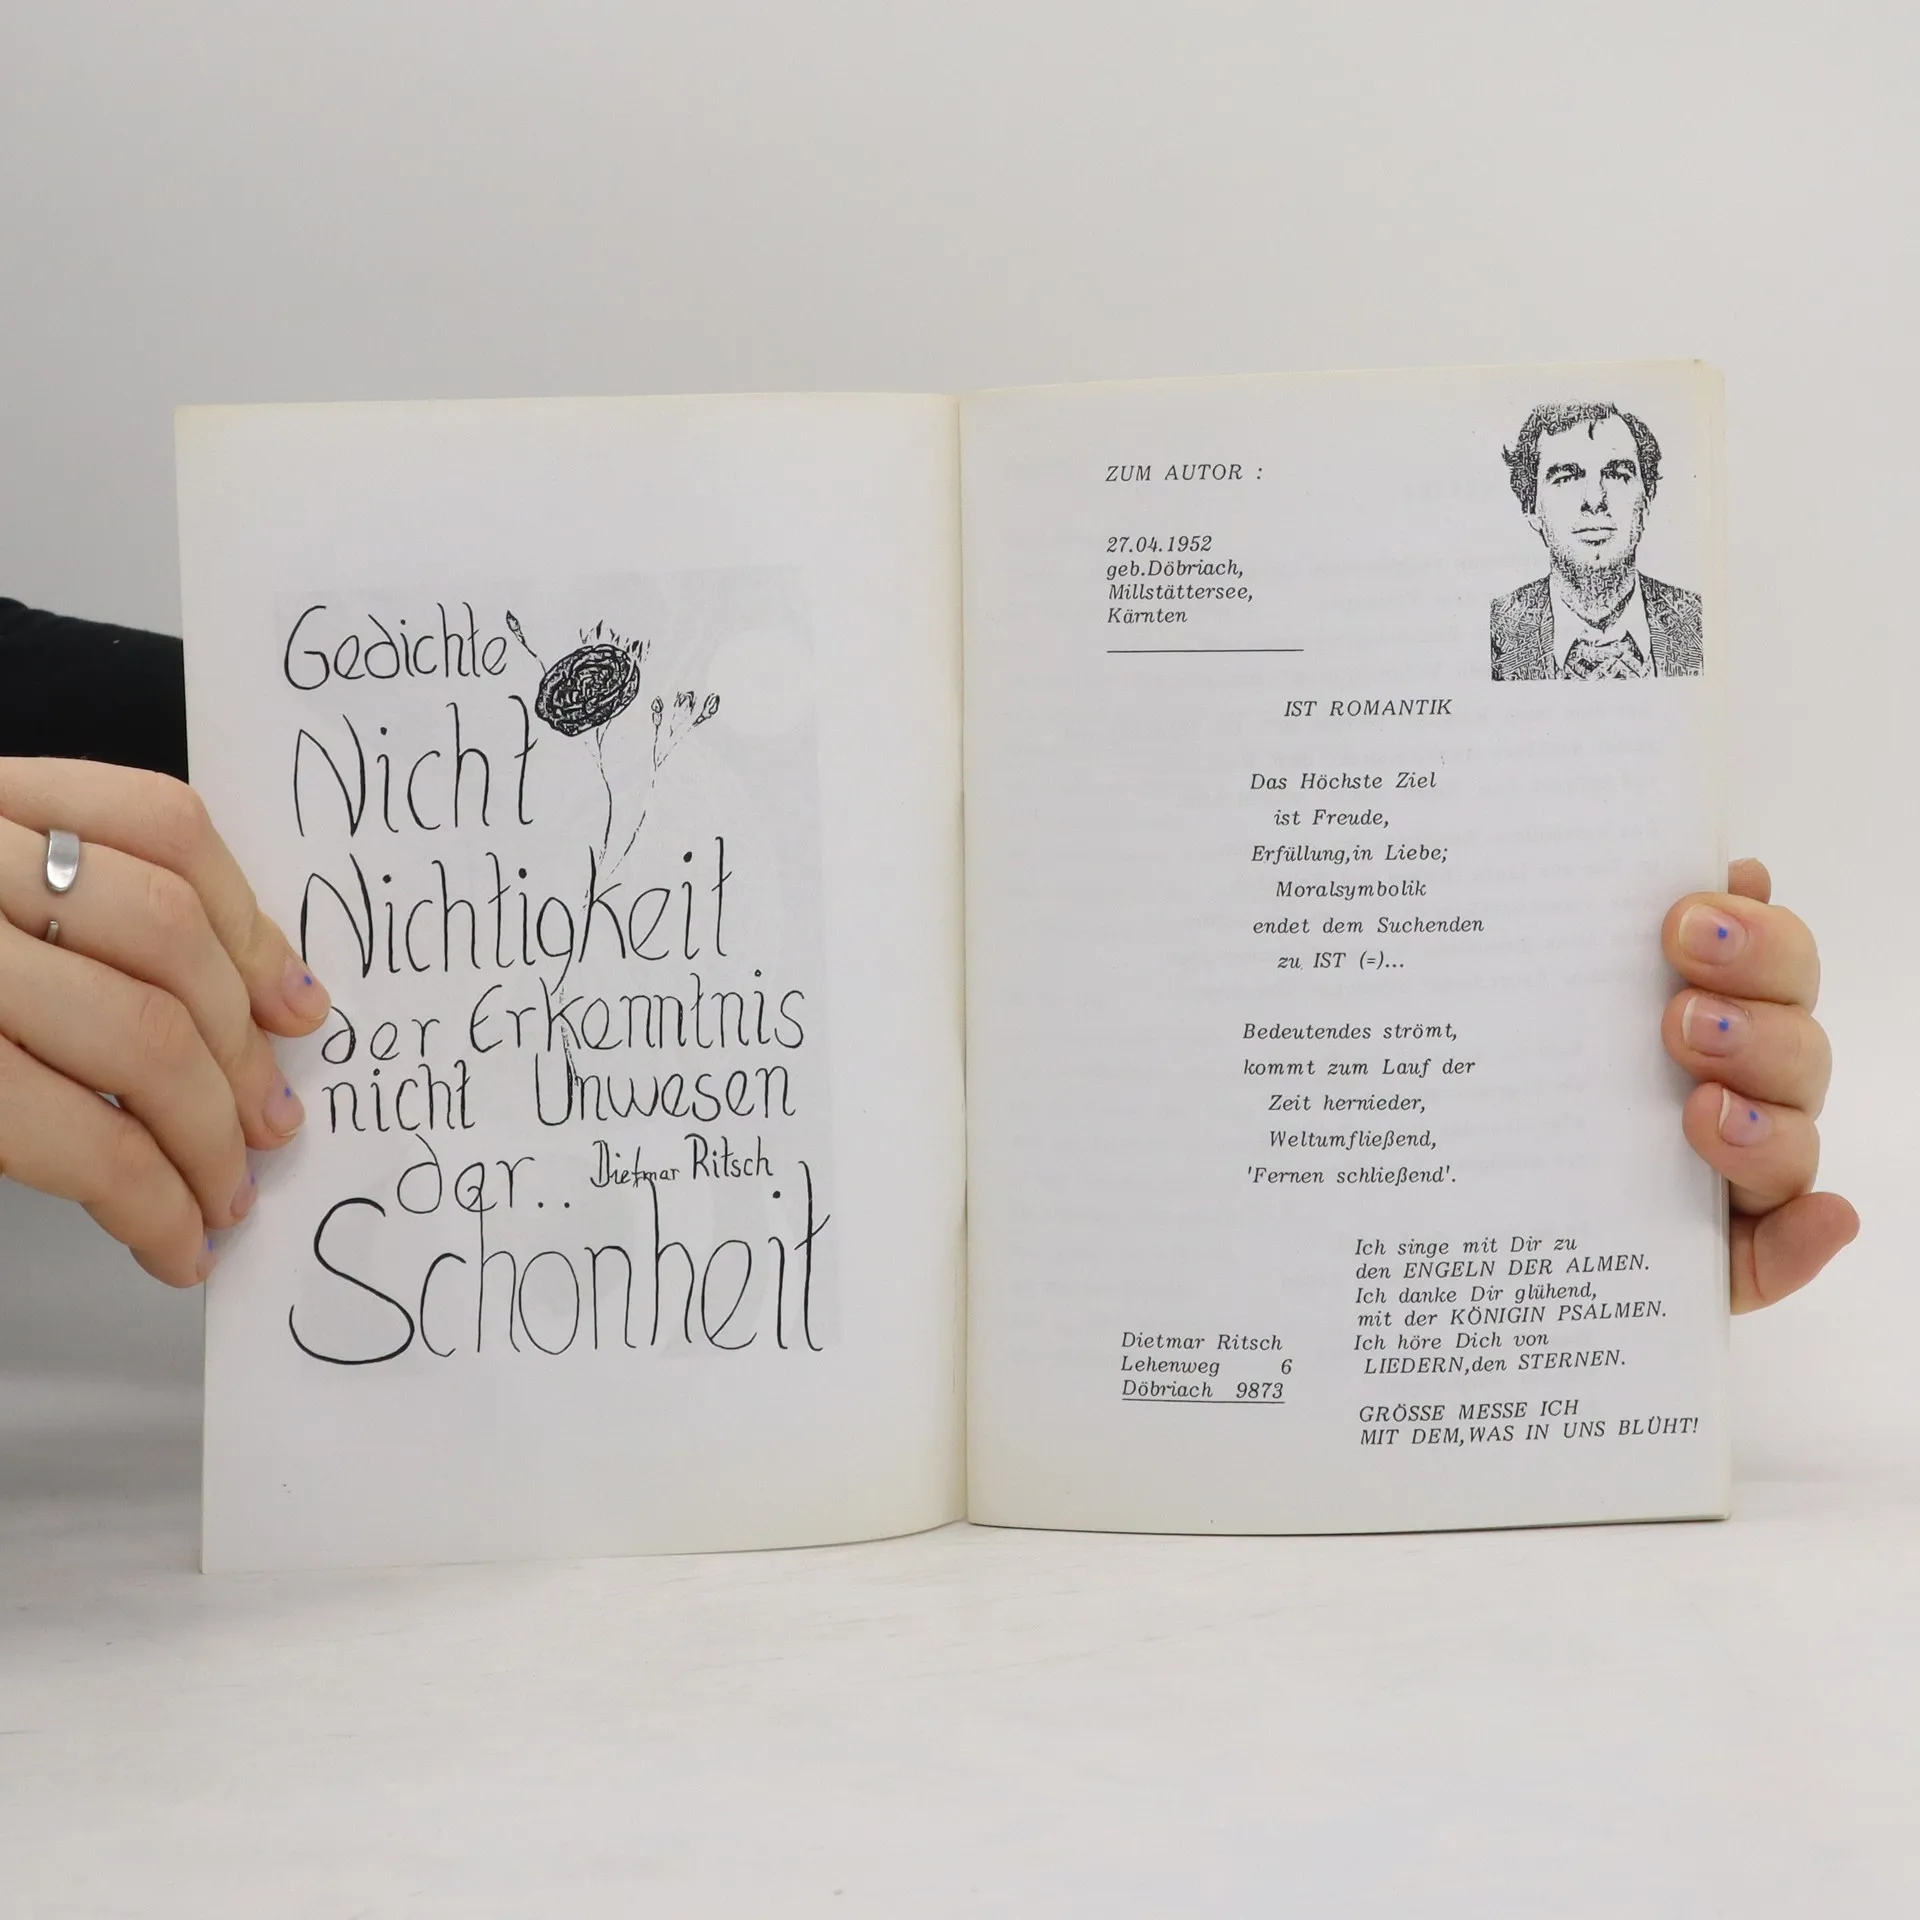 Gedichte
Nicht
Nichtigkeit
der Erkenntnis
nicht Unwesen
der..
Dietmar Ritsch
Schonheit
ZUM AUTOR :
27.04.1952
geb.Döbriach,
Millstättersee,
Kärnten
IST ROMANTIK
Das Höchste Ziel
ist Freude,
Erfüllung,in Liebe;
Moralsymbolik
endet dem Suchenden
zu IST (=)...
Bedeutendes strömt,
kommt zum Lauf der
Zeit hernieder,
Weltumfließend,
'Fernen schließend'.
Ich singe mit Dir zu
den ENGELN DER ALMEN.
Ich danke Dir glühend,
mit der KÖNIGIN PSALMEN.
Ich höre Dich von
LIEDERN,den STERNEN.
GRÖSSE MESSE ICH
MIT DEM,WAS IN UNS BLÜHT!
Dietmar Ritsch
Lehenweg 6
Döbriach 9873